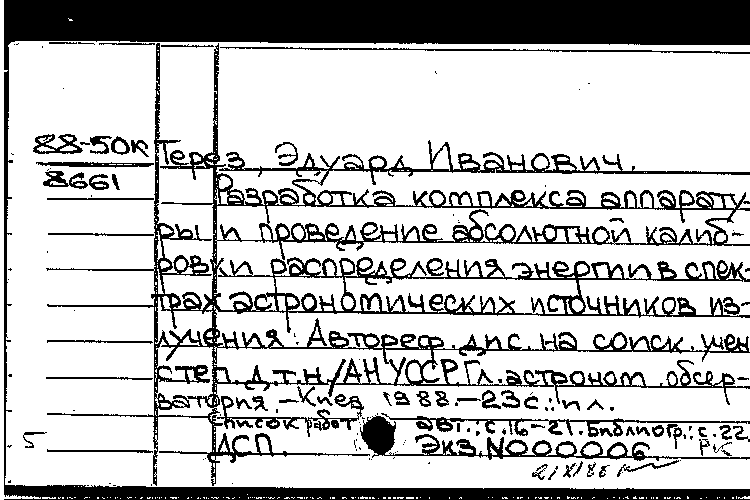 88-50К
8661
Терез, Эдуард Иванович.
Разработка комплекса аппарату-
ры и проведение абсолютной калиб-
ровки распределения энергии в спек-
трах астрономических источников из-
лучения: Автореф. дис. на соиск. учен
степ. д.т.н./АН УССР. Гл. астроном. обсер-
ватория. – Киев 1988. – 23с.: ил.
Список работ авт.: с.16-21. Библиогр.: с.22.
5
ДСП. Экз. N000006. РК